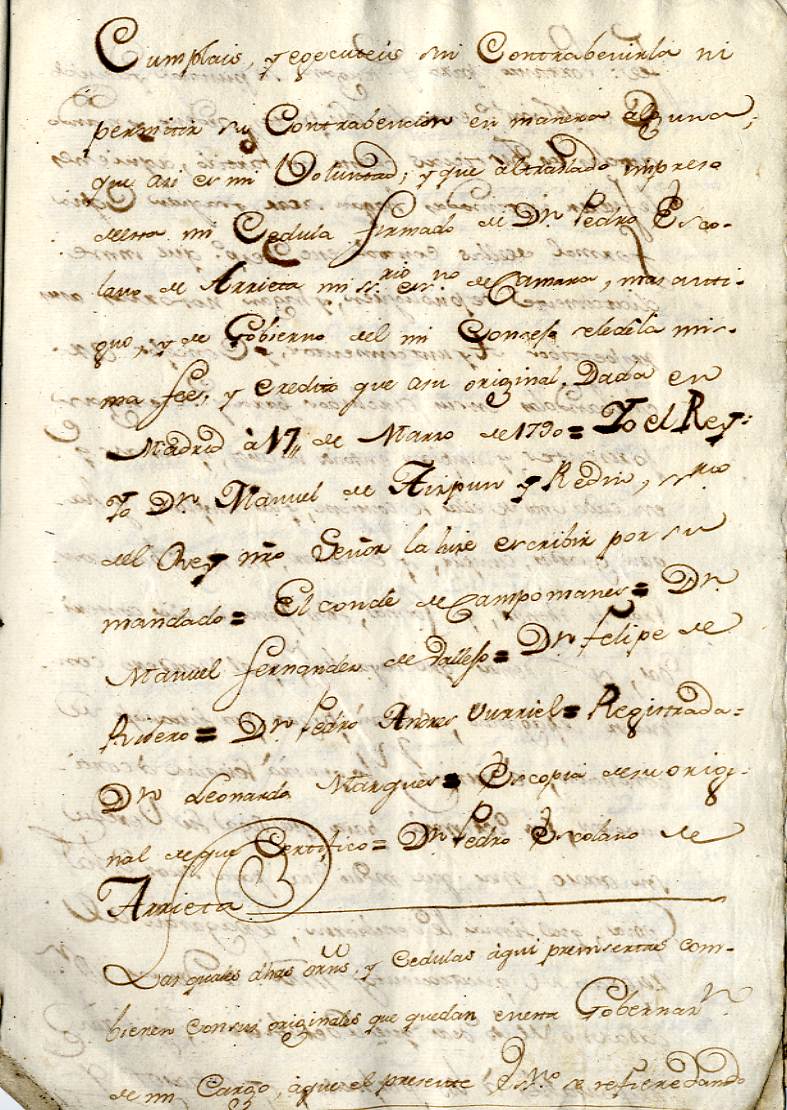 Cumplais, y egecuteis sin Contrabenirla ni
permitir su Contrabencion en manera alguna;
que asi es mi Voluntad; y que al traslado impreso
de esta mi Cedula firmado de Dn. Pedro Esco-
lano de Arrieta mi srio. esno. de Camara, mas anti-
guo, y de Gobierno del mi Consejo se le dé la mis-
ma fee, y credito que a su original. Dada en
Madrid à 17,, de Marzo de 1790 = Yo el Rey =
Yo Dn. Manuel de Aizpun y Redin, srio
del Rey nro Señor la hize escribir por su
mandado = El conde de Campomanes = Dn.
Manuel Fernandez de Vallejo = Dn Felipe de
Rivero = Dn. Pedro Andres Burriel = Registrada =
Dn Leonardo Marques = Es copia de su origi-
nal de que Certifico = Dn Pedro Escolano de
Arrieta
Las quales dhas orns, y Cedulas aqui preinsertas com-
bienen con sus originales que quedan en esta Gobernazn.
de mi Cargo, à que el presente Esno. se refiere dando